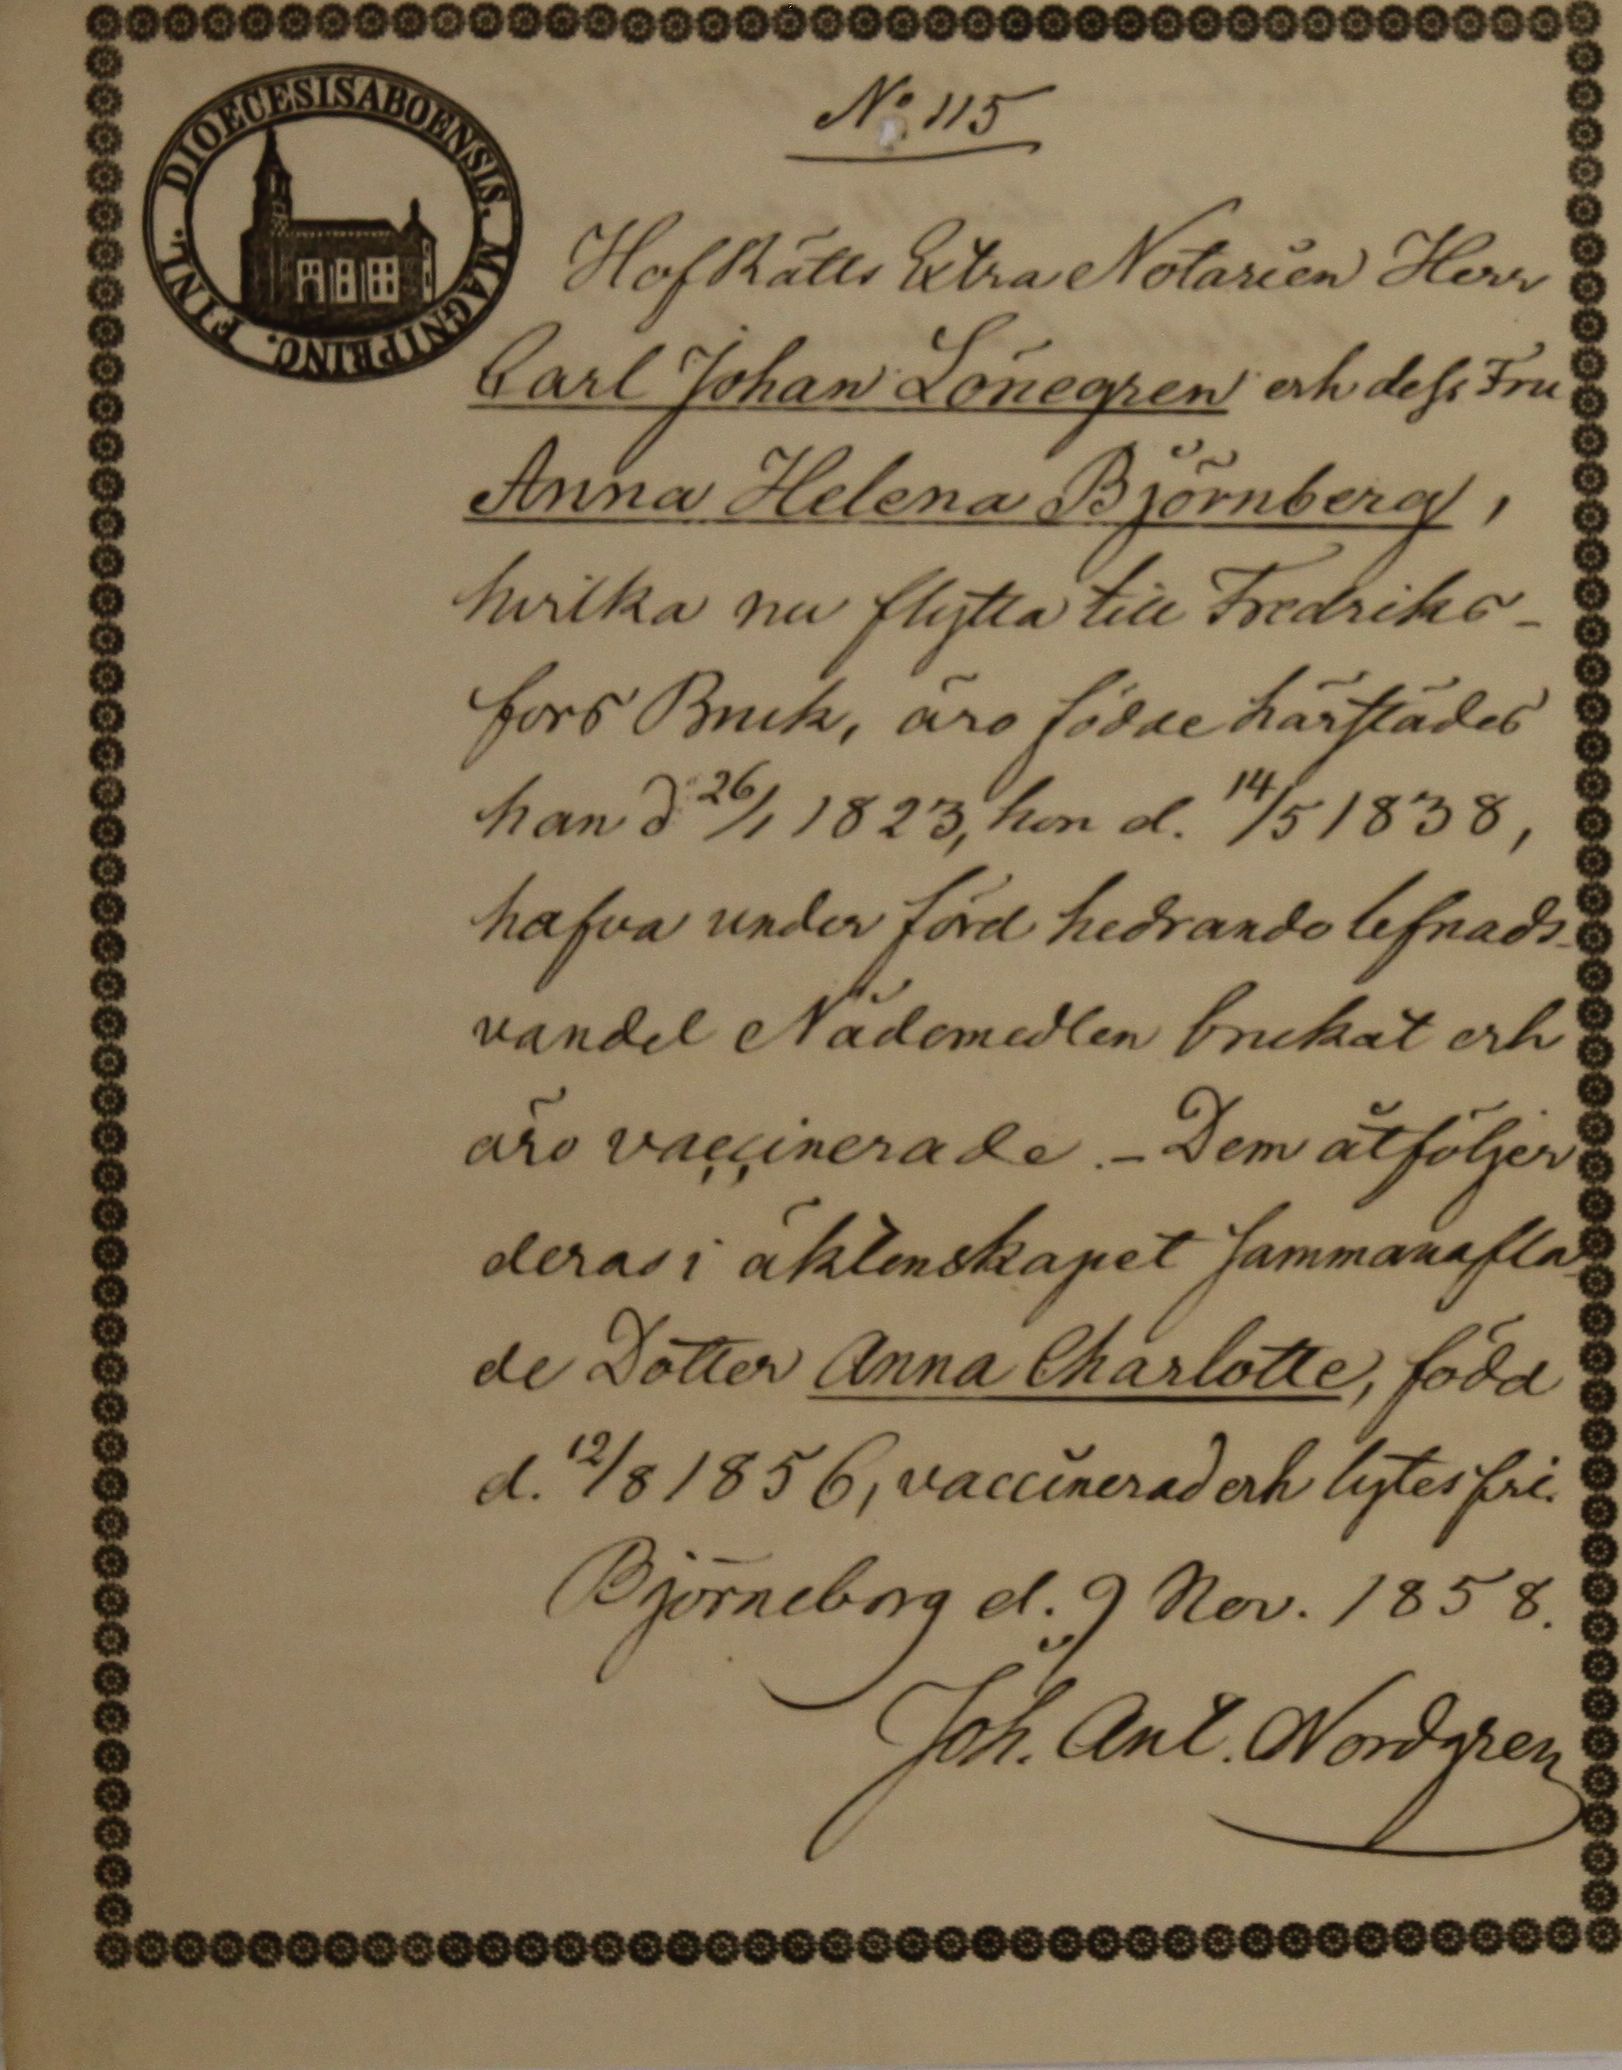 DIOECESIS ABOENSIS. MAGNI PRINC. FINL.
No. 115
HofRätts Extra Notarien Herr
Carl Johan Lönegren och dess Fru
Anna Helena Björnberg,
hvilka nu flytta till Fredriks-
fors Bruk, äro födde härstädes
han d 26/1 1823, hon d. 14/5 1838,
hafva under förd hedrande lefnads-
vandel Nådemedlen brukat och
äro vaccinerade. - Dem åtföljer
deras i äktenskapet sammanafla-
de Dotter Anna Charlotte, född
d. 12/8 1856, vaccinerad och lytesfri.
Björneborg d. 9 Nov. 1858.
Joh. Ant. Nordgren